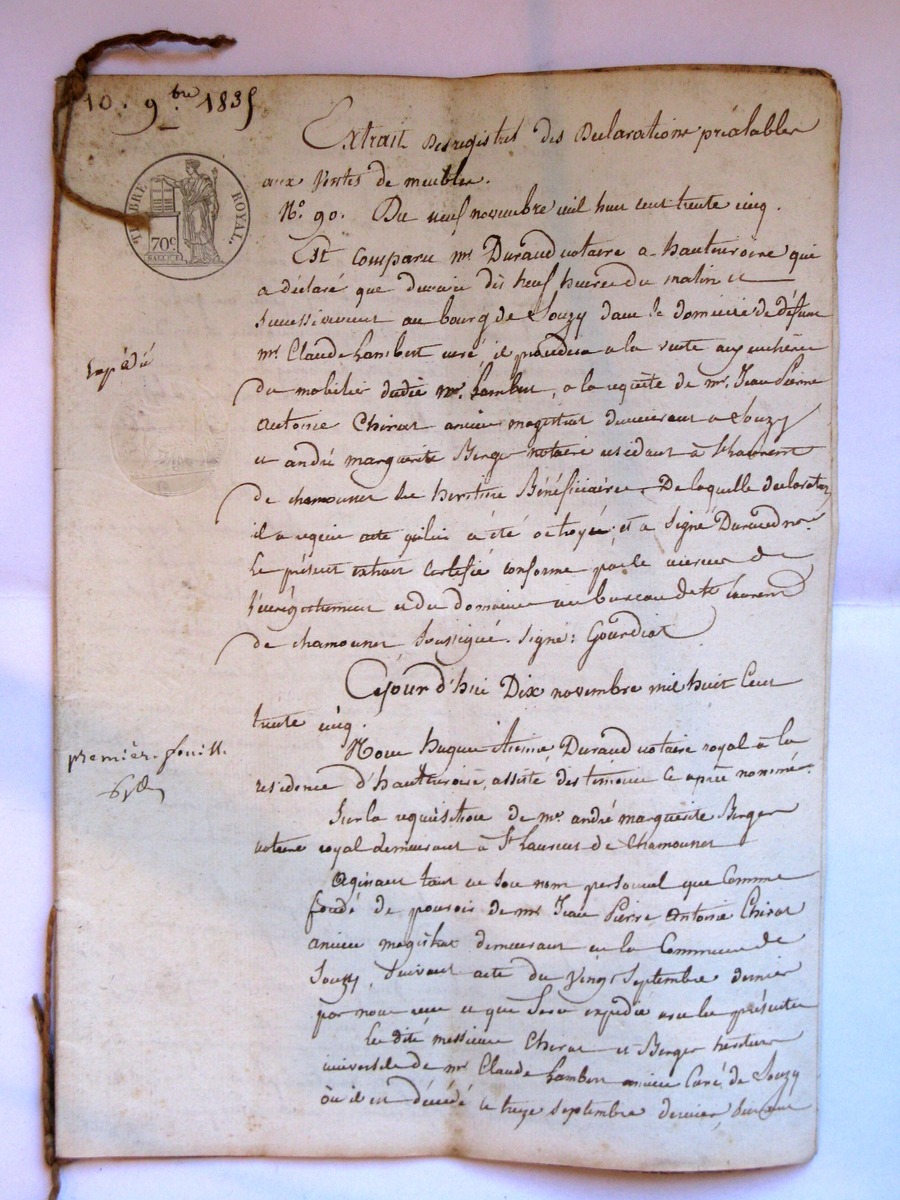 10. 9bre 1835
TIMBRE ROYAL.
70c
Extrait des registres des Déclarations préalables
aux Ventes de meubles.
N° 90. Du neuf novembre mil huit cent trente cinq.
Est comparu mr Durand notaire a hauterivoire qui
a déclaré que demain dès neuf heures du matin et
successivement au bourg de Souzy dans le domicile de défunt
mr Claude Lambert curé, il procédera a la vente aux enchères
Expédié
du mobilier dudit mr. Lambert, a la requête de mr. Jean Pierre
Antoine Chirat ancien magistrat demeurant a Souzy
et andré marguerite Berger notaire residant à St Laurent
de chamousset ses héritiers Bénéficiaires. De laquelle declaration
il a requis acte qui lui a été octroyé; et a signé Durand nre.
Le présent extrait certifié conforme par le receveur de
l'enregistrement et du domaine au bureau de St Laurent
de chamousset soussigné. signé: Gourdiat
Cejourd'hui Dix novembre mil huit Cent
trente cinq.
premier feuill.
Nous hugues Etienne Durand notaire royal à la
residence d'hauterivoire, assisté des témoins ci après nommés.
Sur la requisition de mr. andré marguerite Berger
notaire royal demeurant à St Laurent de Chamousset
Agissant tant en son nom personnel que Comme
fondé de pouvoir de mr Jean Pierre Antoine Chirat
ancien magistrat demeurant en la Commune de
Souzy, suivant acte du Vingt Septembre dernier
par nous reçu et que sera expédié avec les présentes
Les dits messieurs Chirat et Berger héritiers
universels de mr Claude Lambert ancien Curé de Souzy
où il est décédé le treize septembre dernier, suivant